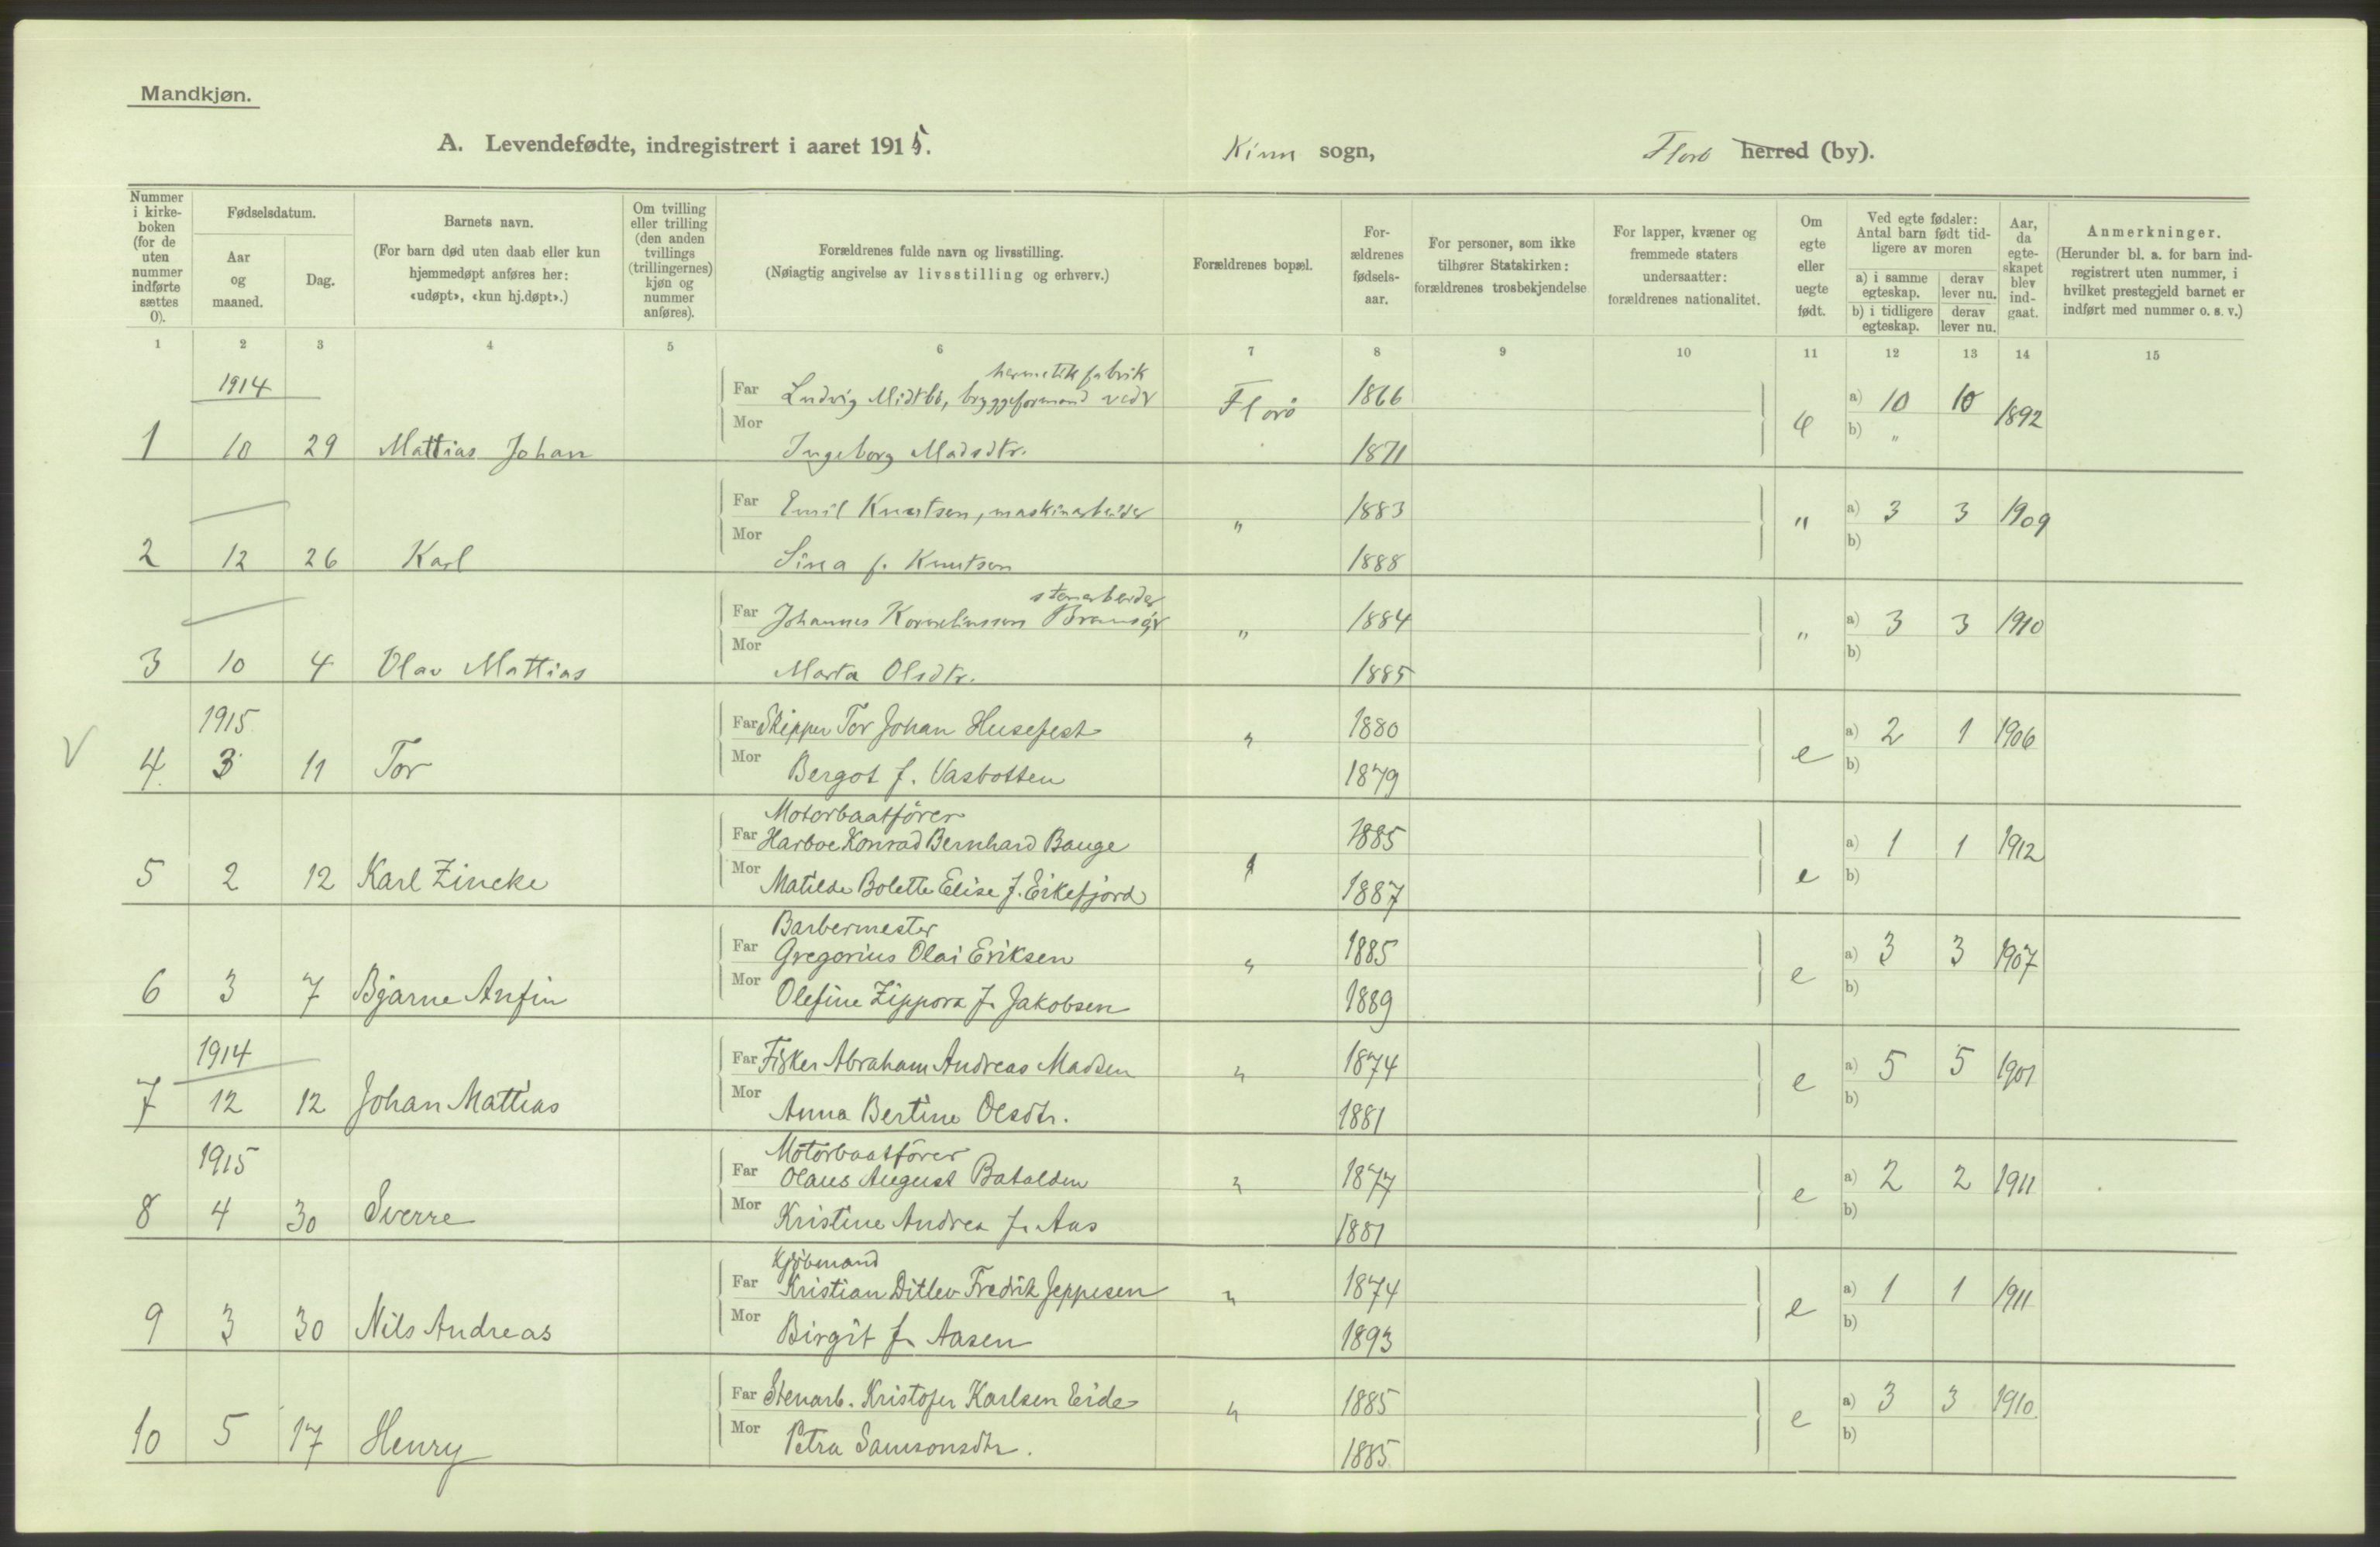 Mandkjøn.
A. Levendefødte, indregistrert i aaret 1915. Kinn sogn, Florø herred (by).
Nummer i kirke-boken (for de uten nummer indførte sættes 0).
Fødselsdatum.
Aar og maaned.
Dag.
Barnets navn.
(For barn død uten daab eller kun hjemmedøpt anføres her: «udøpt», «kun hj.døpt».)
Om tvilling eller trilling (den anden tvillings (trillingernes) kjøn og nummer anføres).
Forældrenes fulde navn og livsstilling.
(Nøiagtig angivelse av livsstilling og erhverv.)
Forældrenes bopæl.
For-ældrenes fødsels-aar.
For personer, som ikke tilhører Statskirken: forældrenes trosbekjendelse
For lapper, kvæner og fremmede staters undersaatter: forældrenes nationalitet.
Om egte eller uegte født.
Ved egte fødsler: Antal barn født tid-ligere av moren
a) i samme egteskap.
derav lever nu.
b) i tidligere egteskap.
derav lever nu.
Aar, da egte-skapet blev ind-gaat.
Anmerkninger.
(Herunder bl. a. for barn ind-registrert uten nummer, i hvilket prestegjeld barnet er indført med nummer o. s. v.)
1 2 3 4 5 6 7 8 9 10 11 12 13 14 15
1914 hermetikfabrik
Far Ludvig Midtbö, bryggeformand ved Florö 1866 a) 10 10 1892
1 10 29 Mattias Johan Mor Ingeborg Madsdtr. 1871 e b) "
Far Emil Knutsen, maskinarbeider " 1883 " a) 3 3 1909
2 12 26 Karl Mor Sina f. Knutsen 1888 b)
stenarbeider
Far Johannes Korneliussen " 1884 " a) 3 3 1910
3 10 4 Olav Mattias Mor Marta Olsdtr. 1885 b)
1915 Far Skipper Tor Johan Husefest " 1880 a) 2 1 1906
V 4. 3 11 Tor Mor Bergot f. Vasbotten 1879 e b)
Motorbaatförer
Far Harboe Konrad Bernhard Bauge " 1885 a) 1 1 1912
5 2 12 Karl Zincke Mor Matilde Bolette Elise f. Eikefjord 1887 e b)
Barbermester
Far Gregorius Olai Eriksen " 1885 a) 3 3 1907
6 3 7 Bjarne Anfin Mor Olefine Zippora f. Jakobsen 1889 e b)
1914 Far Fisker Abraham Andreas Madsen " 1874 a) 5 5 1901
7 12 12 Johan Mattias Mor Anna Bertine Olsdtr. 1881 e b)
1915 Motorbaatförer
Far Olaus August Batalden " 1877 a) 2 2 1911
8 4 30 Sverre Mor Kristine Andrea f. Aas 1881 e b)
Kjöbmand
Far Kristian Ditlev Fredrik Jeppesen " 1874 a) 1 1 1911
9 3 30 Nils Andreas Mor Birgit f. Aasen 1893 e b)
Far Stenarb. Kristofer Karlsen Eide " 1885 a) 3 3 1910
10 5 17 Henry Mor Petra Samsonsdtr. 1885 e b)